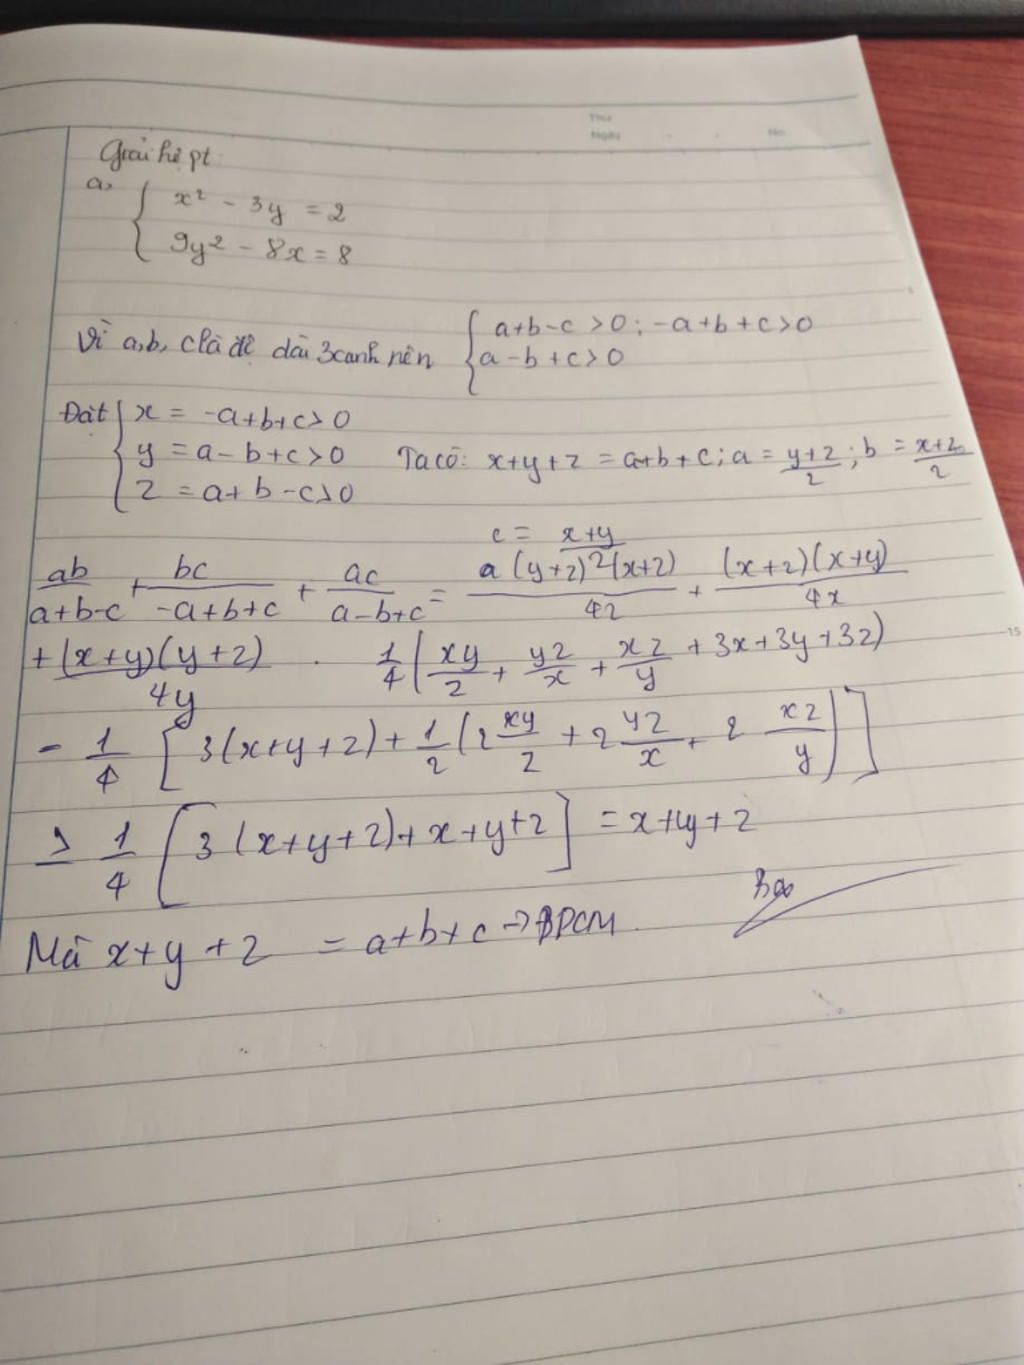 Thứ
Ngày . . No.
Giải hệ pt:
a, { x² - 3y = 2
9y² - 8x = 8
Vì a,b, c là độ dài 3 canh nên { a+b-c >0 ; -a+b+c>0
a-b+c>0
Đặt { x = -a+b+c>0
y = a-b+c>0 Ta có: x+y+z = a+b+c; a = (y+z)/2 ; b = (x+z)/2
z = a+b-c>0
c = x+y
ab/(a+b-c) + bc/(-a+b+c) + ac/(a-b+c) = a(y+z)²(x+z)/4z + (x+z)(x+y)/4x
+ (x+y)(y+z)/4y . 1/4 (xy/z + yz/x + xz/y + 3x+3y+3z)
= 1/4 [3(x+y+z) + 1/2 (2 xy/z + 2 yz/x + 2 xz/y)]
≥ 1/4 [3(x+y+z)+ x+y+z] = x+y+z
Mà x+y+z = a+b+c → ĐPCM.
15